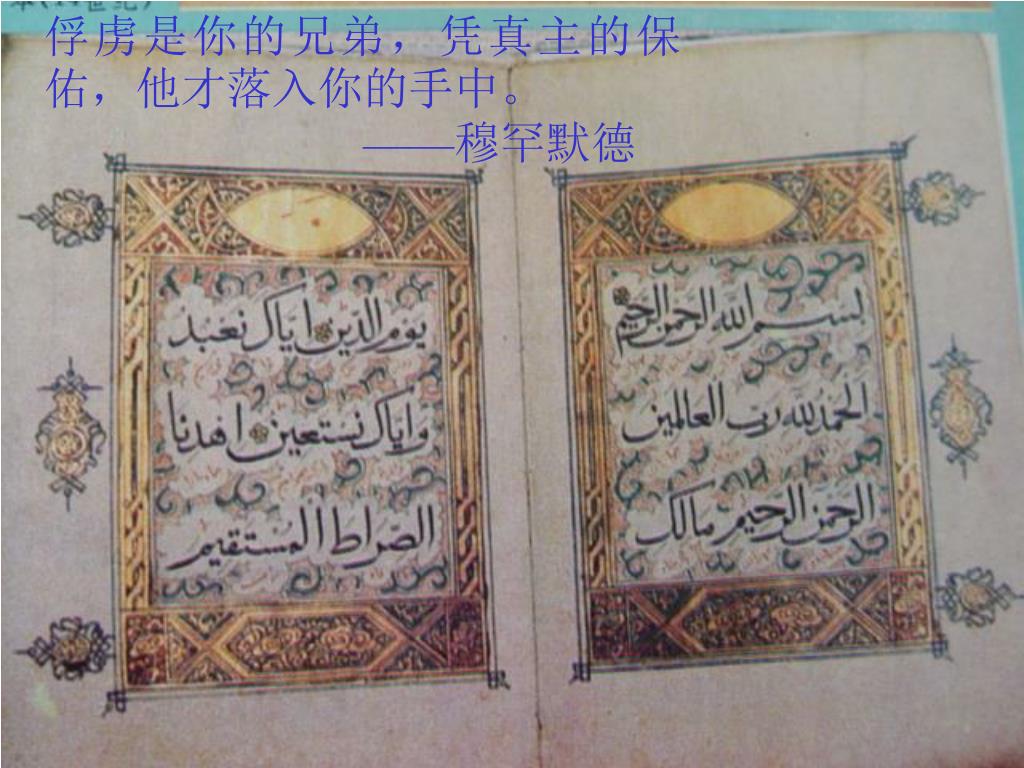 本(14世纪)
俘虏是你的兄弟，凭真主的保
佑，他才落入你的手中。
——穆罕默德
بسم الله الرحمن الرحيم
الحمد لله رب العالمين
الرحمن الرحيم مالك
يوم الدين اياك نعبد
واياك نستعين اهدنا
الصراط المستقيم